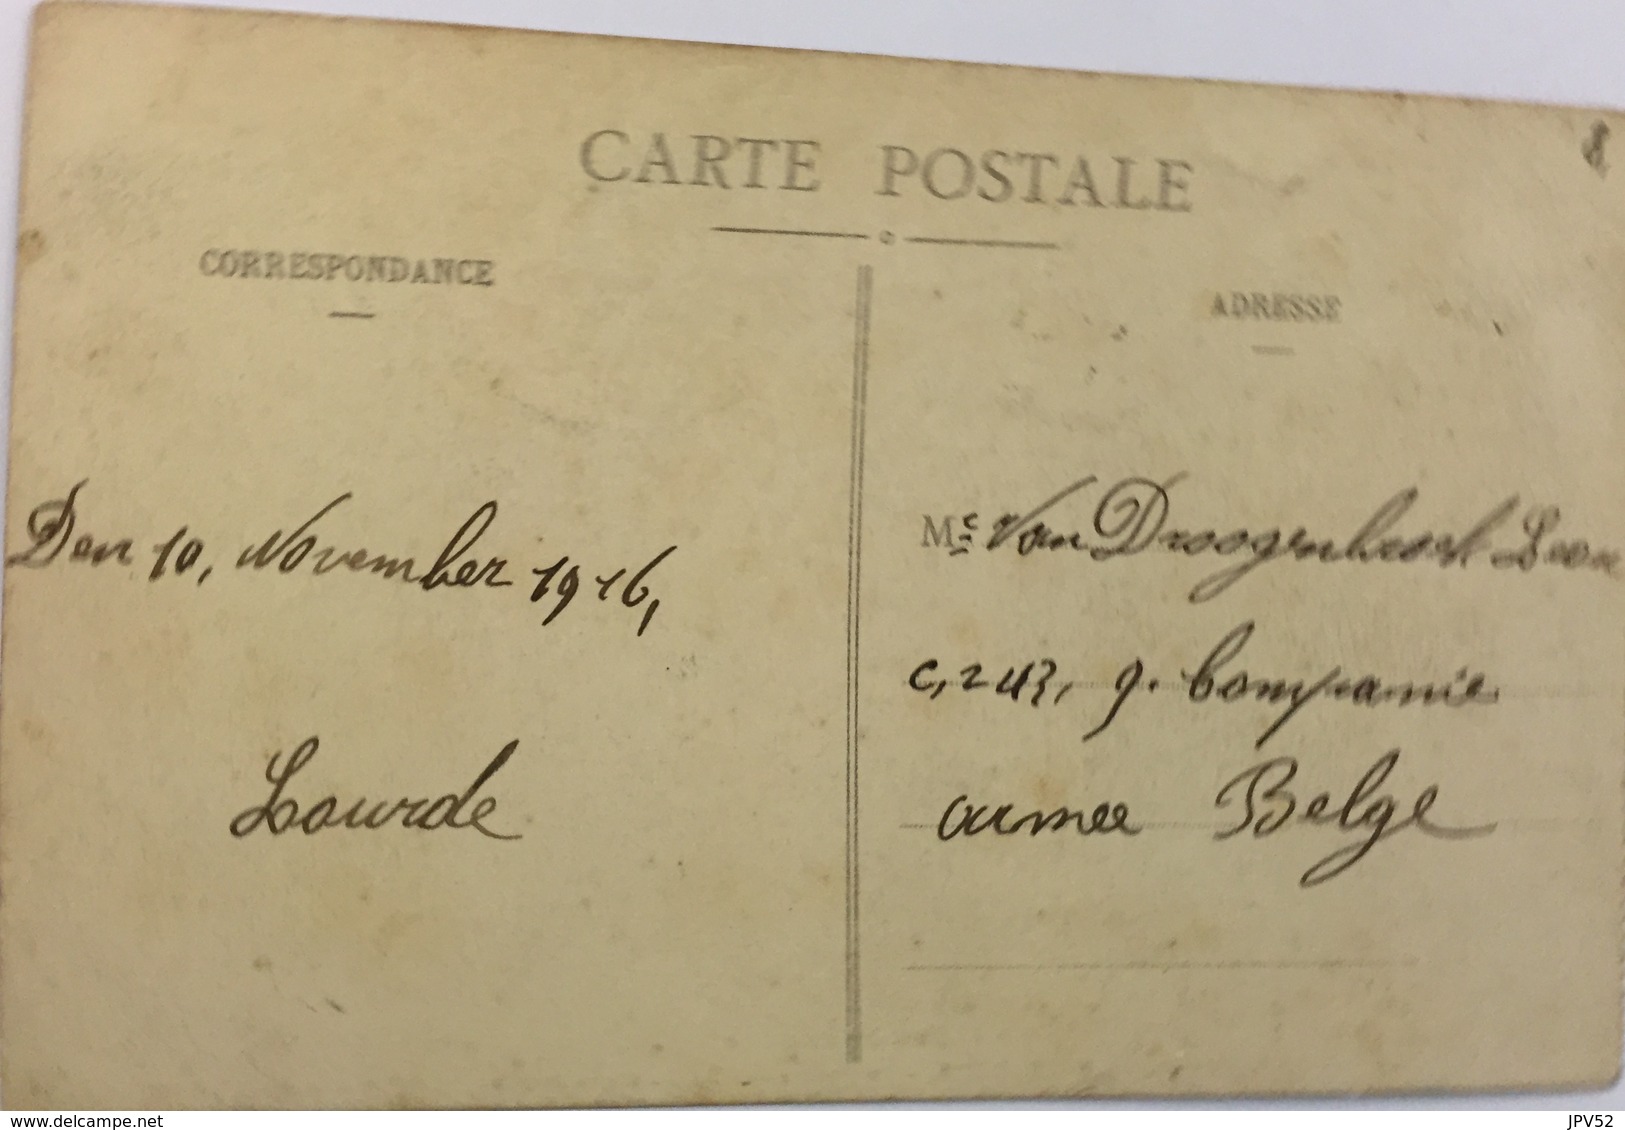 CARTE POSTALE
CORRESPONDANCE
ADRESSE
Den 10, November 1916,
Lourde
Mr Van Droogenbroek Leon
C, 243, 9. Companie
armee Belge
www.delcampe.net
JPV52